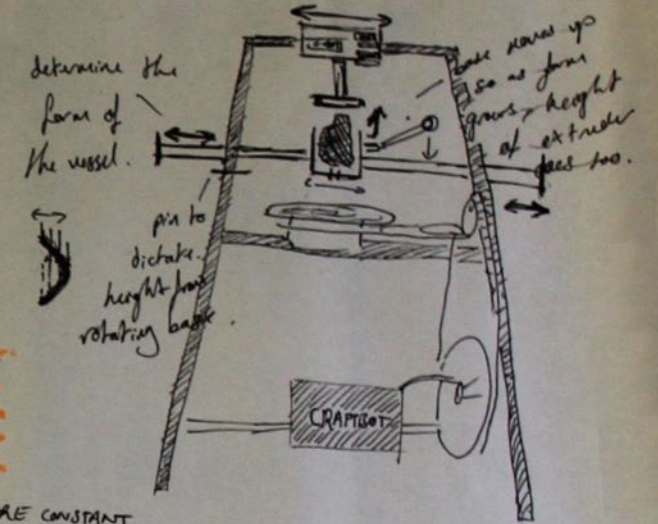 determine the
form of
the vessel.
base moves up
so as form
grows, height
of extruder
goes too.
pin to
dictate
height from
rotating base.
CRAFTBOT
RE CONSTANT